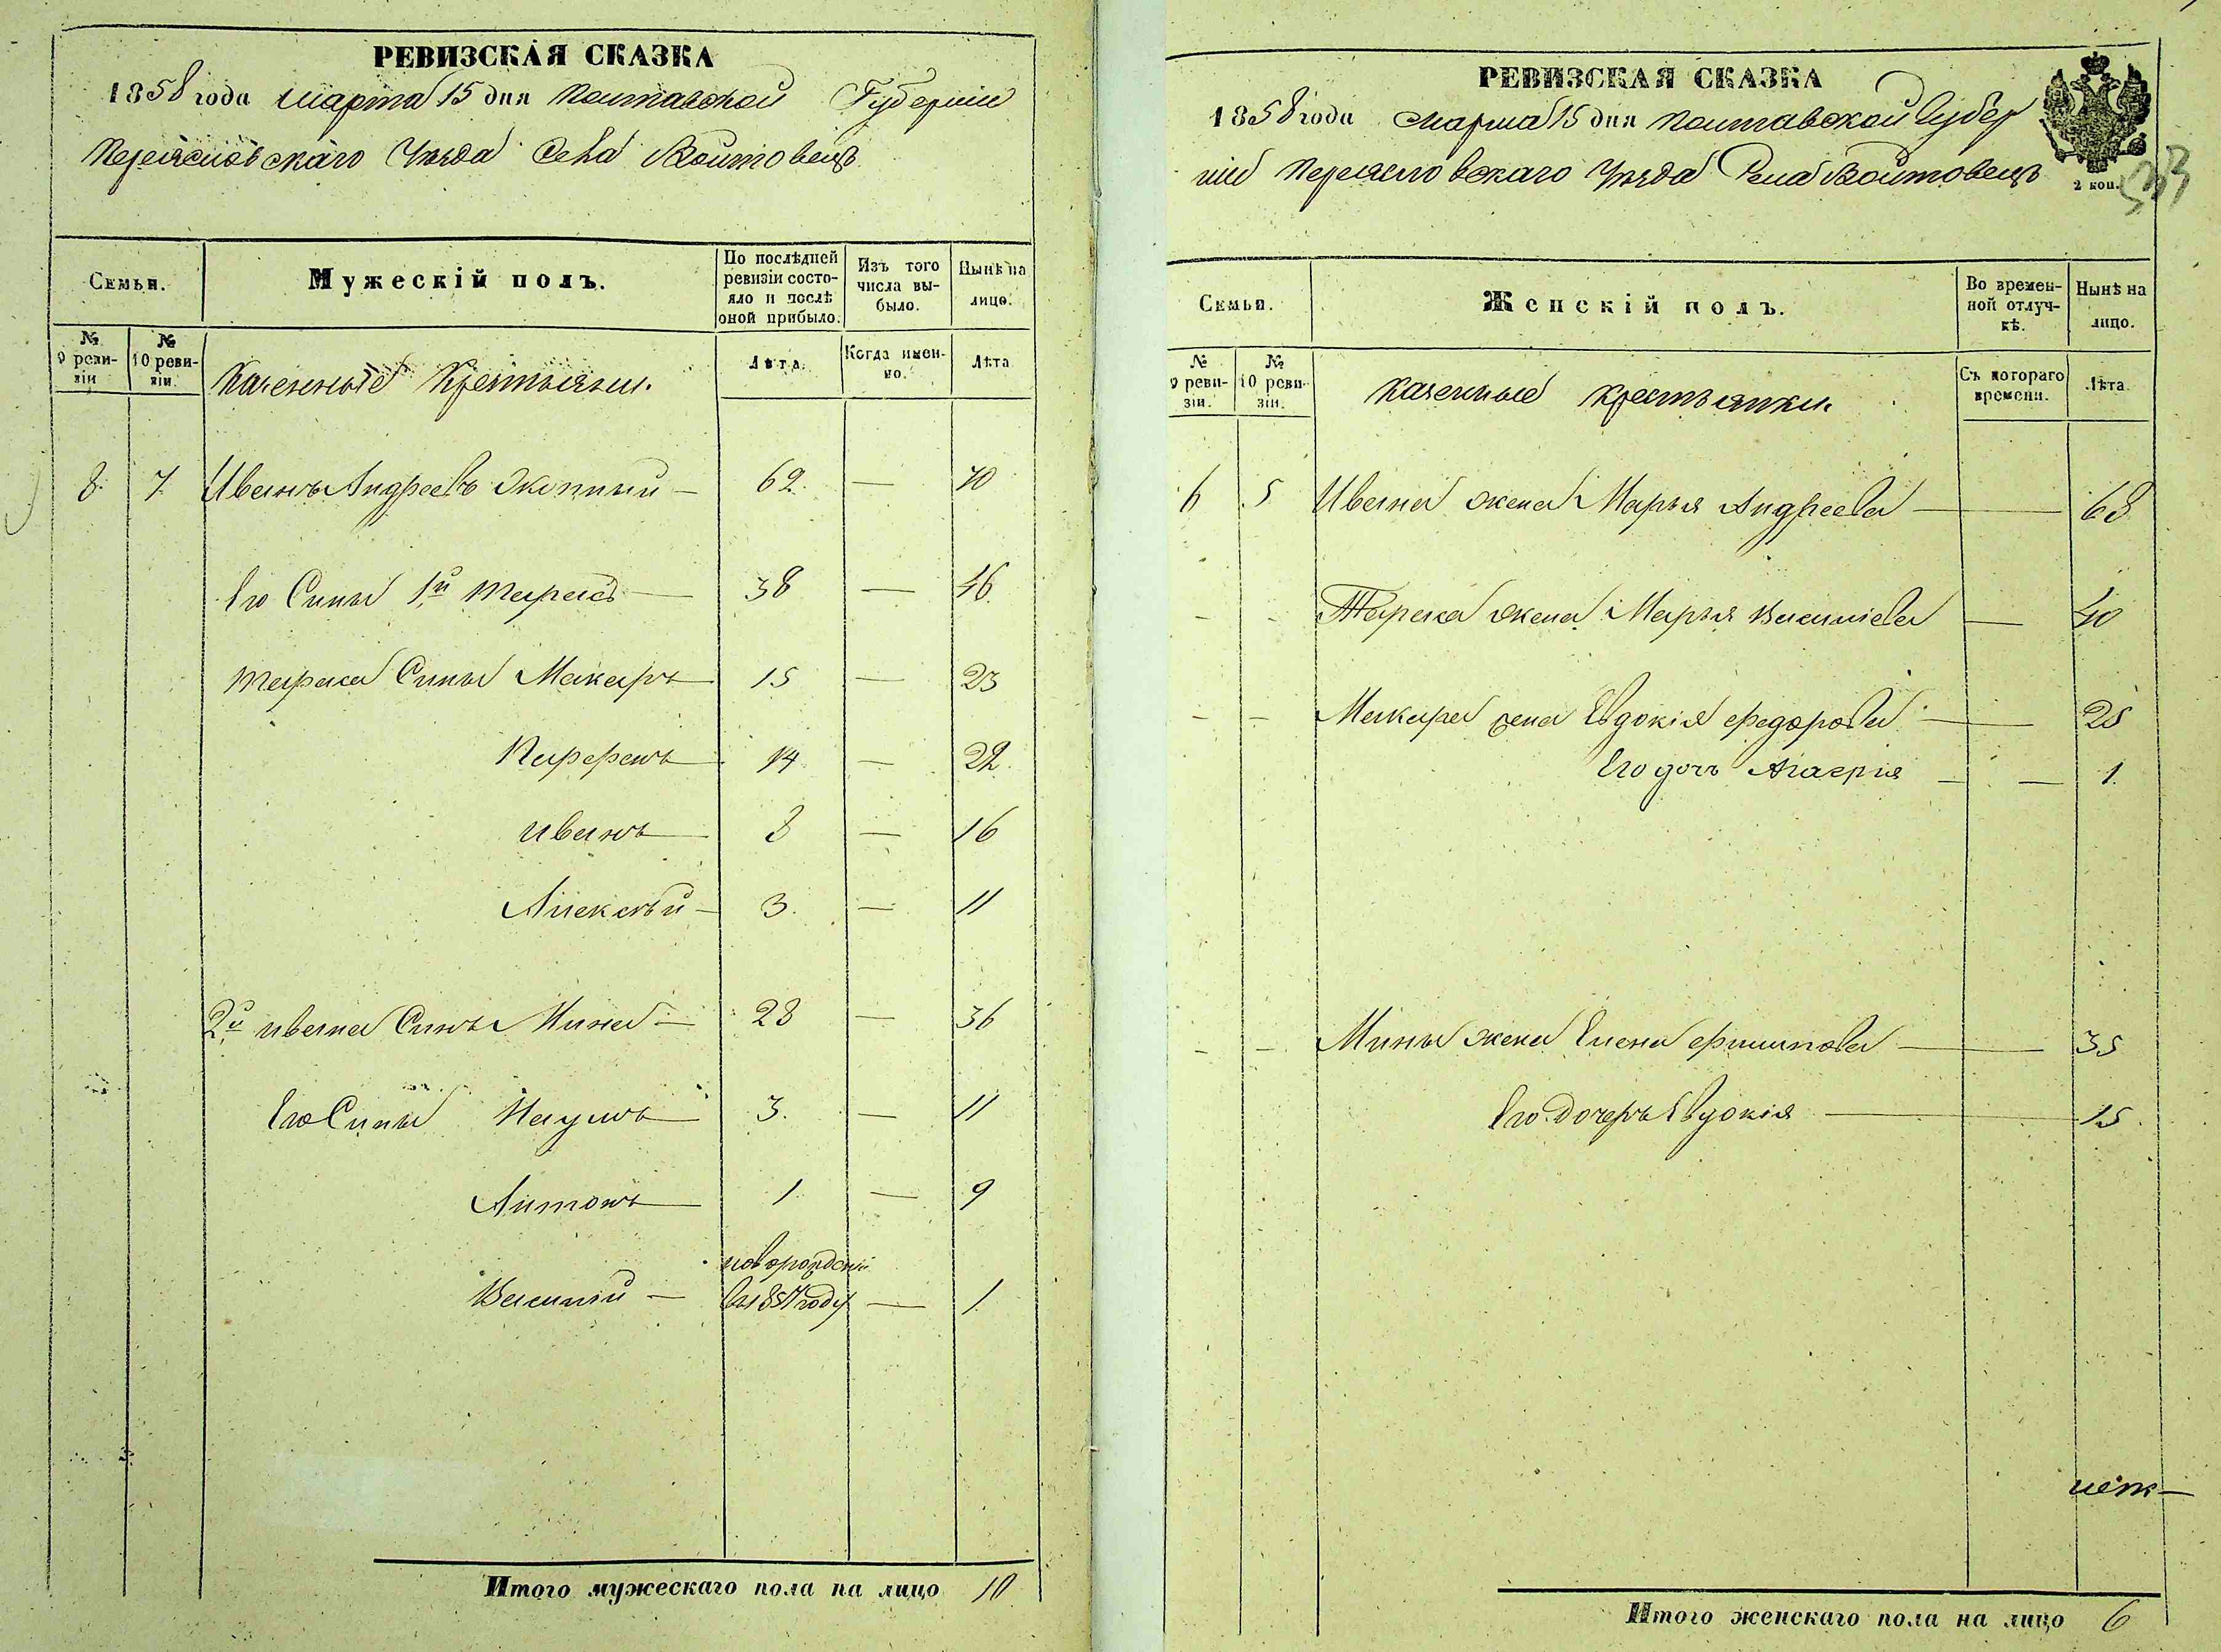 РЕВИЗСКАЯ СКАЗКА
1858 года марта 15 дня Полтавской Губерніи
Переяславскаго Уѣзда Села Войтовецъ
Семьи.
Мужескій полъ.
По послѣдней ревизіи состояло и послѣ оной прибыло.
Изъ того числа выбыло.
Нынѣ на лицо.
№ 9 ревизіи
№ 10 ревизіи.
Казенные Крестьяни.
Лѣта.
Когда именно.
Лѣта
8. 7. Иванъ Андреевъ — 62. — 70
Его Сыны 1й Тарасъ — 38 — 46.
Тараса Сыны Макаръ — 15 — 23
Парфенъ — 14 — 22.
Иванъ — 8 — 16
Алексѣй — 3. — 11
2й Ивана Сынъ Мина — 28 — 36
Его Сыны Наумъ — 3. — 11
Антонъ — 1 — 9
новорожденный
Василій — въ 1857 году — 1.
Итого мужескаго пола на лицо 10
РЕВИЗСКАЯ СКАЗКА
1858 года марта 15 дня Полтавской Губер
ніи Переяславскаго Уѣзда Села Войтовецъ
2 коп.
33
Семьи.
Женскій полъ.
Во временной отлучкѣ.
Нынѣ на лицо.
№ 9 ревизіи.
№ 10 ревизіи.
Казенные крестьянки.
Съ котораго времени.
Лѣта
6 5 Ивана жена Марья Андреева — 68
- - Тараса жена Марья Василіева — 40
- - Макара жена Евдокія Федорова — 25
Его дочь — 1.
- - Мины жена Елена Филипова — 35
Его дочерь Евдокія — 15.
Итого женскаго пола на лицо 6